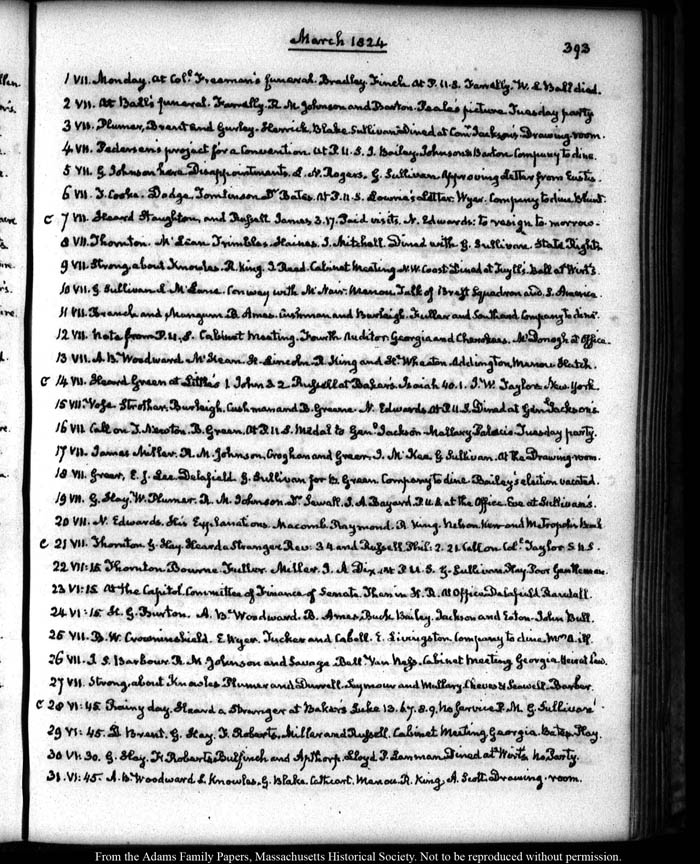 March 1824
393
1 VII. Monday. At Col.l Freeman's funeral. Bradley Finch at P.U.S. Farrelly. W. L Ball died.
2 VII. At Ball's funeral. Farrelly. R. M. Johnson and Barton. Peale's picture Tuesday party
3 VII. Plumer, Brent and Gurley. Herrick. Blake Sullivan. Dined at Com.r Jackson's. Drawing-room.
4 VII. Pedersen's project for a Convention. at P. U. S. J. Bailey. Johnson & Barton. Company to dine.
5 VII. G. Johnson here. Disappointments. R. N. Rogers. G. Sullivan. Approving Letter from Eustis.
6 VII. J. Cooke. Dodge, Tomlinson Dr Bates. at P. U. S. Lowrie's Letter. Wyer. Company to dine. Blunt.
C 7 VII. Heard Staughton, and Russell James 3.17. Paid visits. N. Edwards: to resign to morrow.
8 VII. Thornton. McLean Trimble. Haines. J. Mitchell. Dined with G. Sullivan. State Rights
9 VII. Strong, about Knowles. R. King. J. Reed. Cabinet Meeting N.W. Coast. Dined at Tuyll's. Ball at Wirt's.
10 VII. G Sullivan L McLane. Conway with McNair. Menou. Talk of Brest Squadron and S. America.
11 VII. French and Mangum B. Ames. Cushman and Burleigh. Fuller and Southard Company to dine.
12 VII. Note from P. U, S. Cabinet Meeting. Fourth Auditor. Georgia and Cherokees. McDonogh at Office.
13 VII. A. B. Woodward McKean. H. Lincoln R. King and H. Wheaton. Addington, Menou. Hatch.
C 14 VII. Heard Green at Little's 1. John 3 2. Russell at Baker's. Isaiah 40.1. J. W. Taylor. New York.
15 VII. Vose Strother. Burleigh. Cushman and B. Greene. N. Edwards. At P. U. S. Dined at Gen.l Jackson's.
16 VII. Call on T. Newton. B. Green. At P. U S. Medal to Gen.l Jackson. Mallary Palacio. Tuesday party.
17 VII. James Miller. R. M. Johnson. Croghan and Green. J. McKee. G Sullivan. At the Drawing-room.
18 VII. Greer, E. J. Lee. Delafield. G. Sullivan for D. Green. Company to dine. Bailey's election vacated.
19 VII. G. Hay. W. Plumer. R. M. Johnson. Dr Sewall. J. A Bayard. P. U. S. at the Office. Eve at Sullivan's.
20 VII. N. Edwards. His Explanations. Macomb. Raymond. R. King. Nelson. Kerr and M. Tropolis Bank
C 21 VII. Thornton G. Hay. Heard a Stranger Rev: 3 4. and Russell. Phil: 2. 21. Call on Col.l Taylor. S U S.
22 VII:15 Thornton Bourne. Fuller. Miller. J. A Dix. At P. U. S. G. Sullivan. Hay. Poor Gentleman.
23 VI:15. At the Capitol. Committee of Finance of Senate. Then in H. R. At Office. Delafield. Randall.
24 VI:15. H. G. Burton. A. B. Woodward. B. Ames, Buck Bailey. Jackson and Eaton. John Bull.
25 VII. B. W. Crowninshield. E Wyer. Tucker and Cabell. E. Livingston. Company to dine. Mrs A. ill.
26 VII. J. S. Barbour. R. M. Johnson and Savage. Ball. Van Ness. Cabinet Meeting. Georgia. Heir at Law.
27 VII. Strong, about Knowles. Plumer and Durrell. Seymour and Mallary. Cheves & Seawell. Barber.
C 28 VI:45. Rainy day. Heard a Stranger at Baker's Luke 13. 6.7. 8.9. No Service P. M. G Sullivan
29 VI:45. D Brent. G. Hay. J. Roberts, Miller and Russell. Cabinet Meeting. Georgia. Bates. Hay.
30 VI:30. G. Hay. J. Roberts. Bulfinch and Apthorp. Lloyd. J. Lanman. Dined at Wirt's. No Party.
31. VI:45. A. B. Woodward S. Knowles, G. Blake. Cathcart. Menou. R. King, A. Scott. Drawing-room.
From the Adams Family Papers, Massachusetts Historical Society. Not to be reproduced without permission.